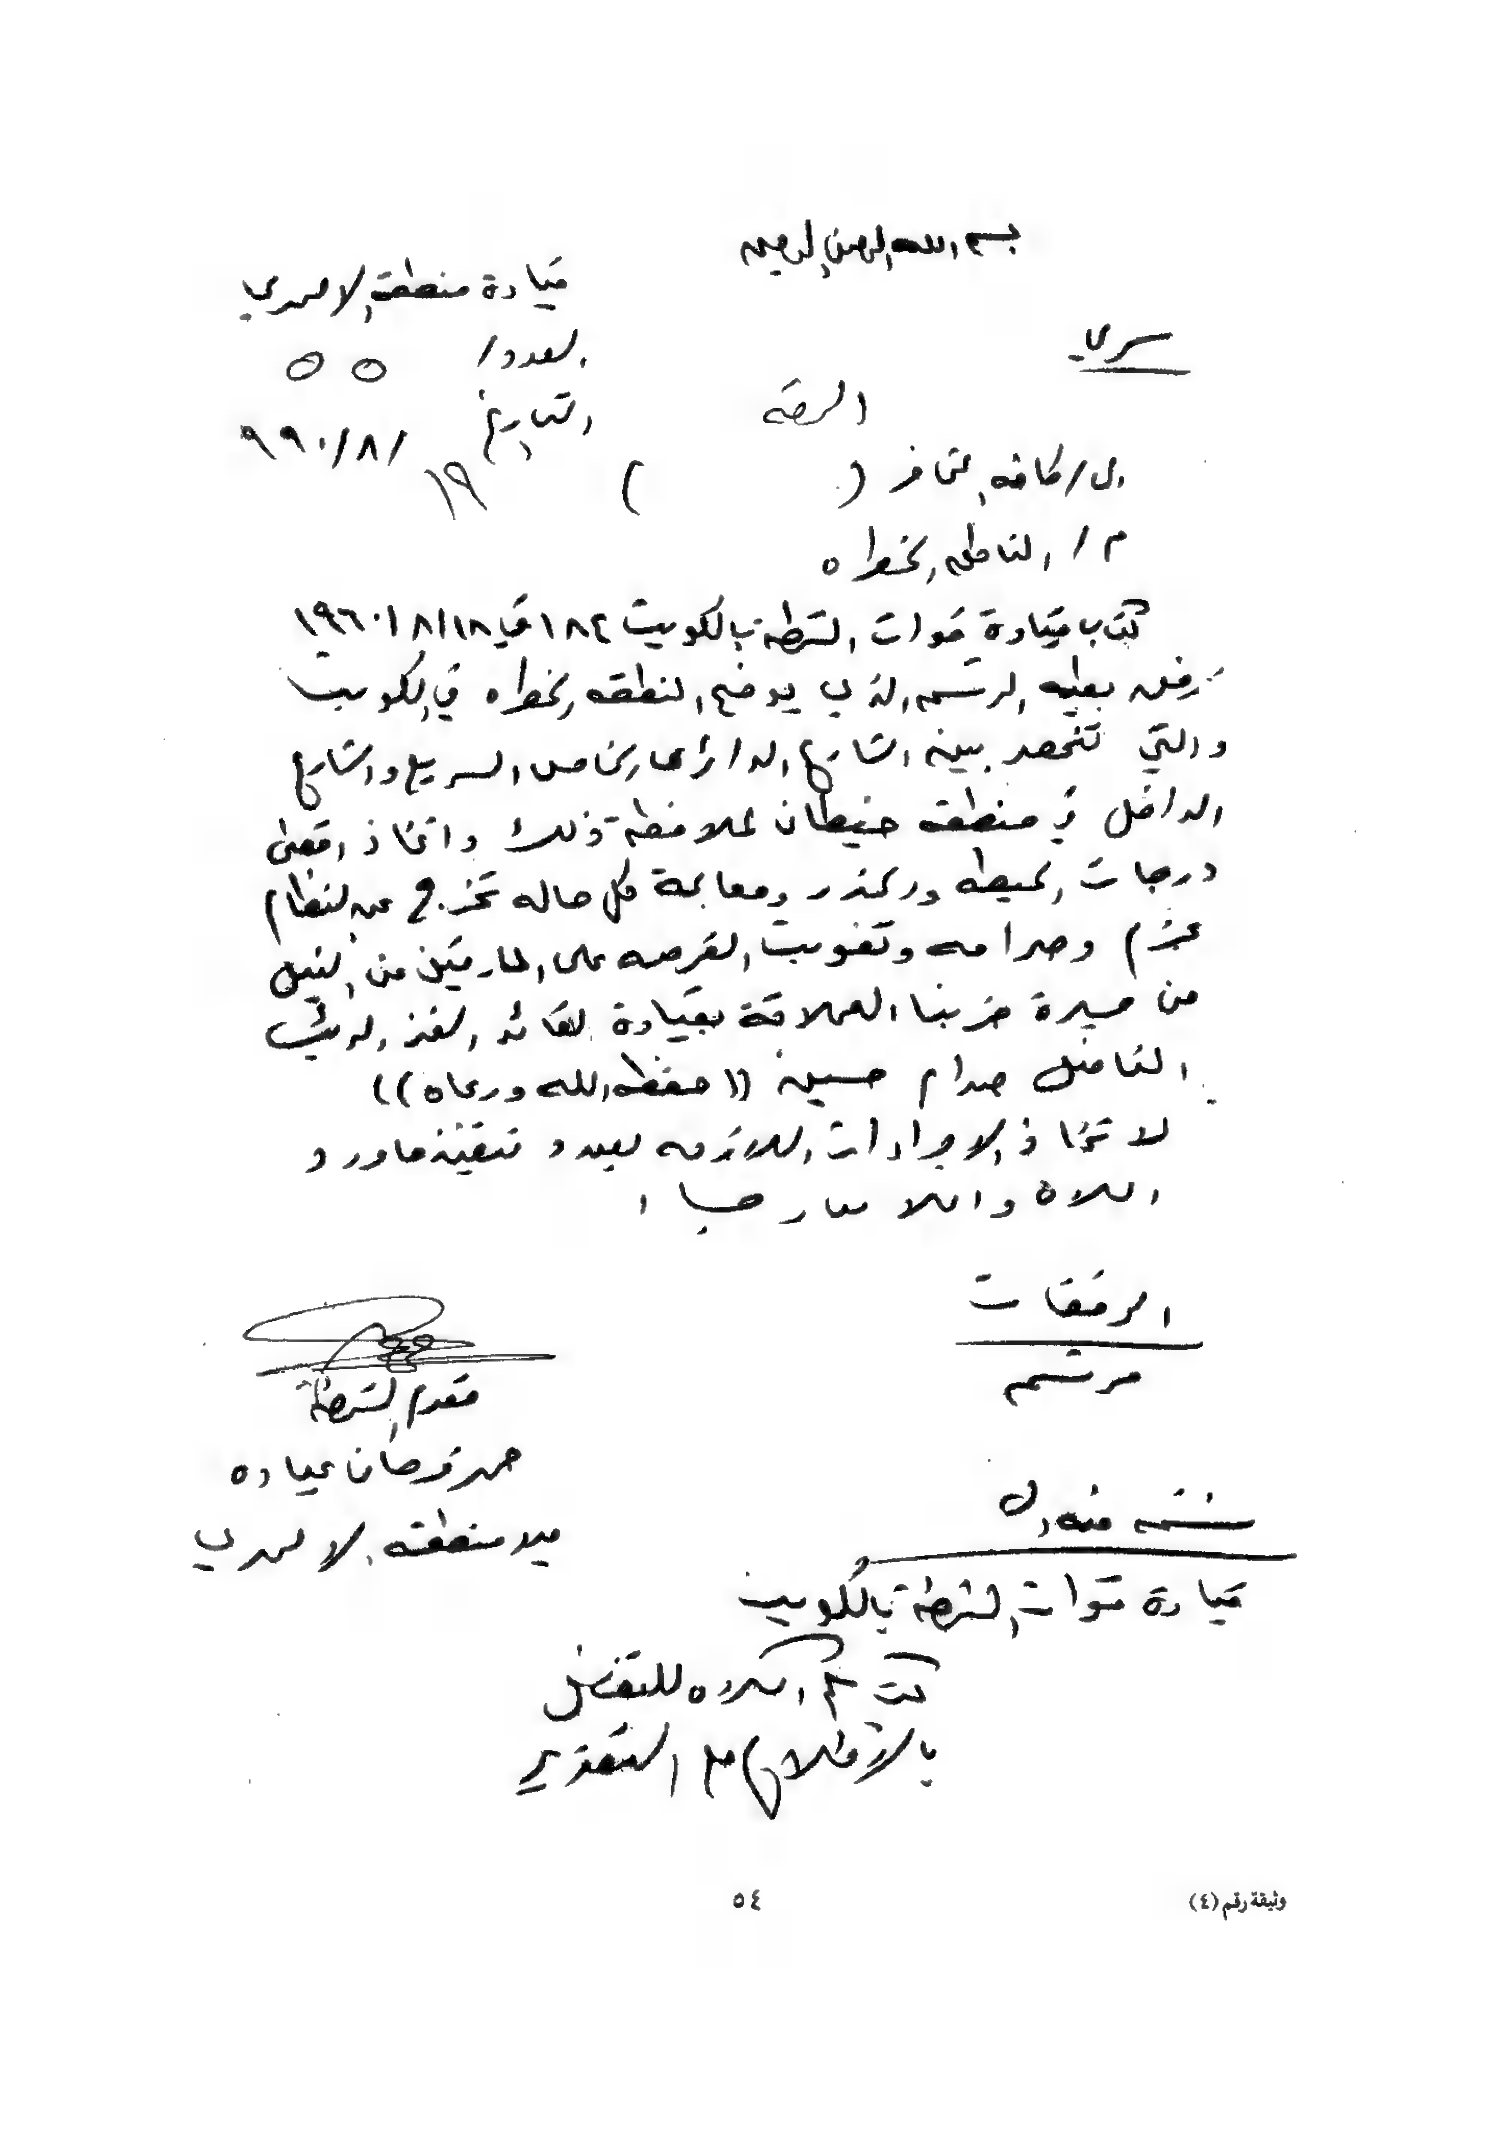 بسم الله الرحمن الرحيم
قيادة منطقة الاحمدي
سري
العدد/
٥٥
الرقة
التاريخ ١٩ /٨/٩٩٠
الى/ كافه المخافر ( )
م/ المناطق الخطره
كتاب قيادة قوات الشرطة بالكويت ١٨٤ في ١٨/٨/١٩٩٠
نرفق بطيه المرتسم الذي يوضح المنطقه الخطره في الكويت
والتي تنحصر بين الشارع الدائري الخامس السريع والشارع
الداخل في منطقه خيطان لملاحظة ذلك واتخاذ اقصى
درجات الحيطه والحذر ومعالجة كل حاله تخرج عن النظام
بحزم وصرامه وتفويت الفرصه على المارقين من النيل
من مسيرة حزبنا العملاقة بقيادة القائد الفذ الرئيس
المناضل صدام حسين ((حفظه الله ورعاه))
لاتخاذ الاجراءات اللازمه لصدد تنفيذ ماورد
اعلاه واعلامنا رجاءا
المرفقات
مرتسم
مقدم الشرطة
حمد فرحان عياده
مدير منطقه الاحمدي
نسخه منه الى
قيادة قوات الشرطة بالكويت
كتابكم اعلاه للتفضل
بالاطلاع مع التقدير
وثيقة رقم (٤)
٥٤